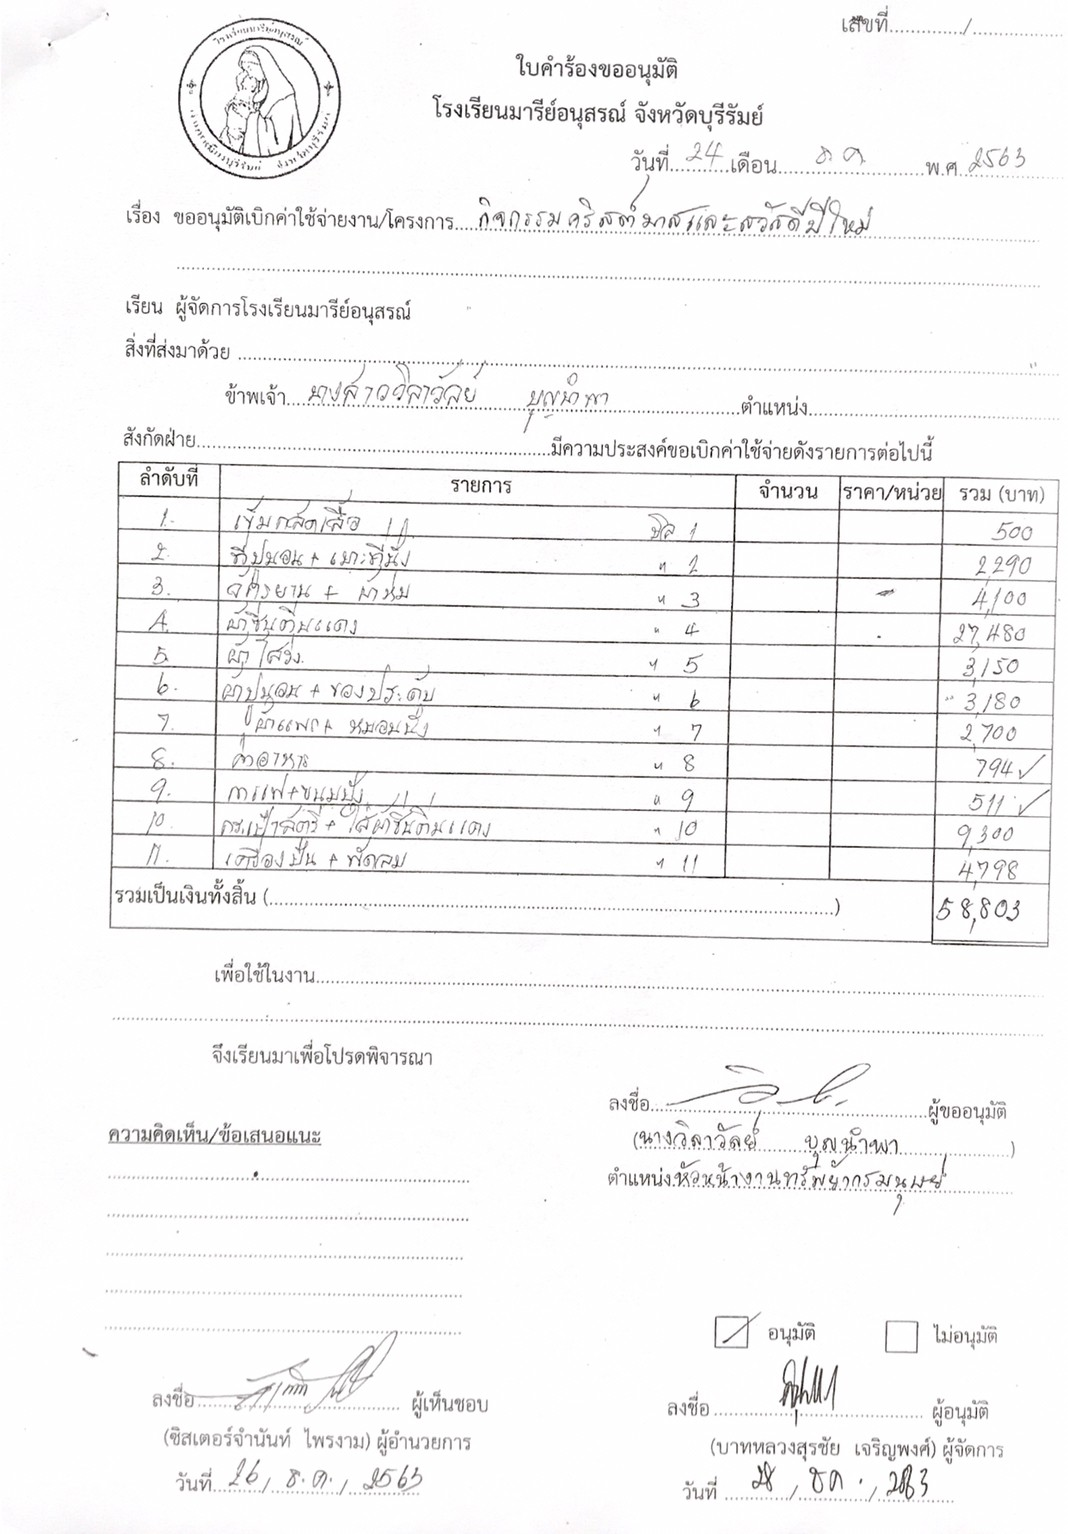 เลขที่............../................
โรงเรียนมารีย์อนุสรณ์
ใบคำร้องขออนุมัติ
โรงเรียนมารีย์อนุสรณ์ จังหวัดบุรีรัมย์
วันที่ 24 เดือน ธ.ค. พ.ศ. 2563
เรื่อง ขออนุมัติเบิกค่าใช้จ่ายงาน/โครงการ กิจกรรมคริสต์มาสและสวัสดีปีใหม่
เรียน ผู้จัดการโรงเรียนมารีย์อนุสรณ์
สิ่งที่ส่งมาด้วย
ข้าพเจ้า นางสาววิลาวัลย์ บุญนำพา ตำแหน่ง
สังกัดฝ่าย มีความประสงค์ขอเบิกค่าใช้จ่ายดังรายการต่อไปนี้
ลำดับที่ รายการ จำนวน ราคา/หน่วย รวม (บาท)
1. เข็มกลัดเสื้อ บิล 1 500
2. ที่ปูนอน + เบาะที่นั่ง " 2 2,290
3. จักรยาน + ผ้าห่ม " 3 4,100
4. ผ้าซิ่นตีนแดง " 4 27,480
5. ผ้าโสร่ง " 5 3,150
6. ผ้าปูนอน + ของประดับ " 6 3,180
7. ผ้าแพร + หมอนนั่ง " 7 2,700
8. ค่าอาหาร " 8 794 ✓
9. กาแฟ + ขนมปัง " 9 511 ✓
10. กระเป๋าสตรี + ใส่ผ้าซิ่นตีนแดง " 10 9,300
11. เครื่องปั่น + พัดลม " 11 4,798
รวมเป็นเงินทั้งสิ้น (..........) 58,803
เพื่อใช้ในงาน
จึงเรียนมาเพื่อโปรดพิจารณา
ลงชื่อ ผู้ขออนุมัติ
(นางวิลาวัลย์ บุญนำพา)
ตำแหน่ง หัวหน้างานทรัพยากรมนุษย์
ความคิดเห็น/ข้อเสนอแนะ
อนุมัติ ไม่อนุมัติ
ลงชื่อ ผู้เห็นชอบ
(ซิสเตอร์จำนันท์ ไพรงาม) ผู้อำนวยการ
วันที่ 26 / ธ.ค. / 2563
ลงชื่อ ผู้อนุมัติ
(บาทหลวงสุรชัย เจริญพงศ์) ผู้จัดการ
วันที่ 28 / ธค. / 2563